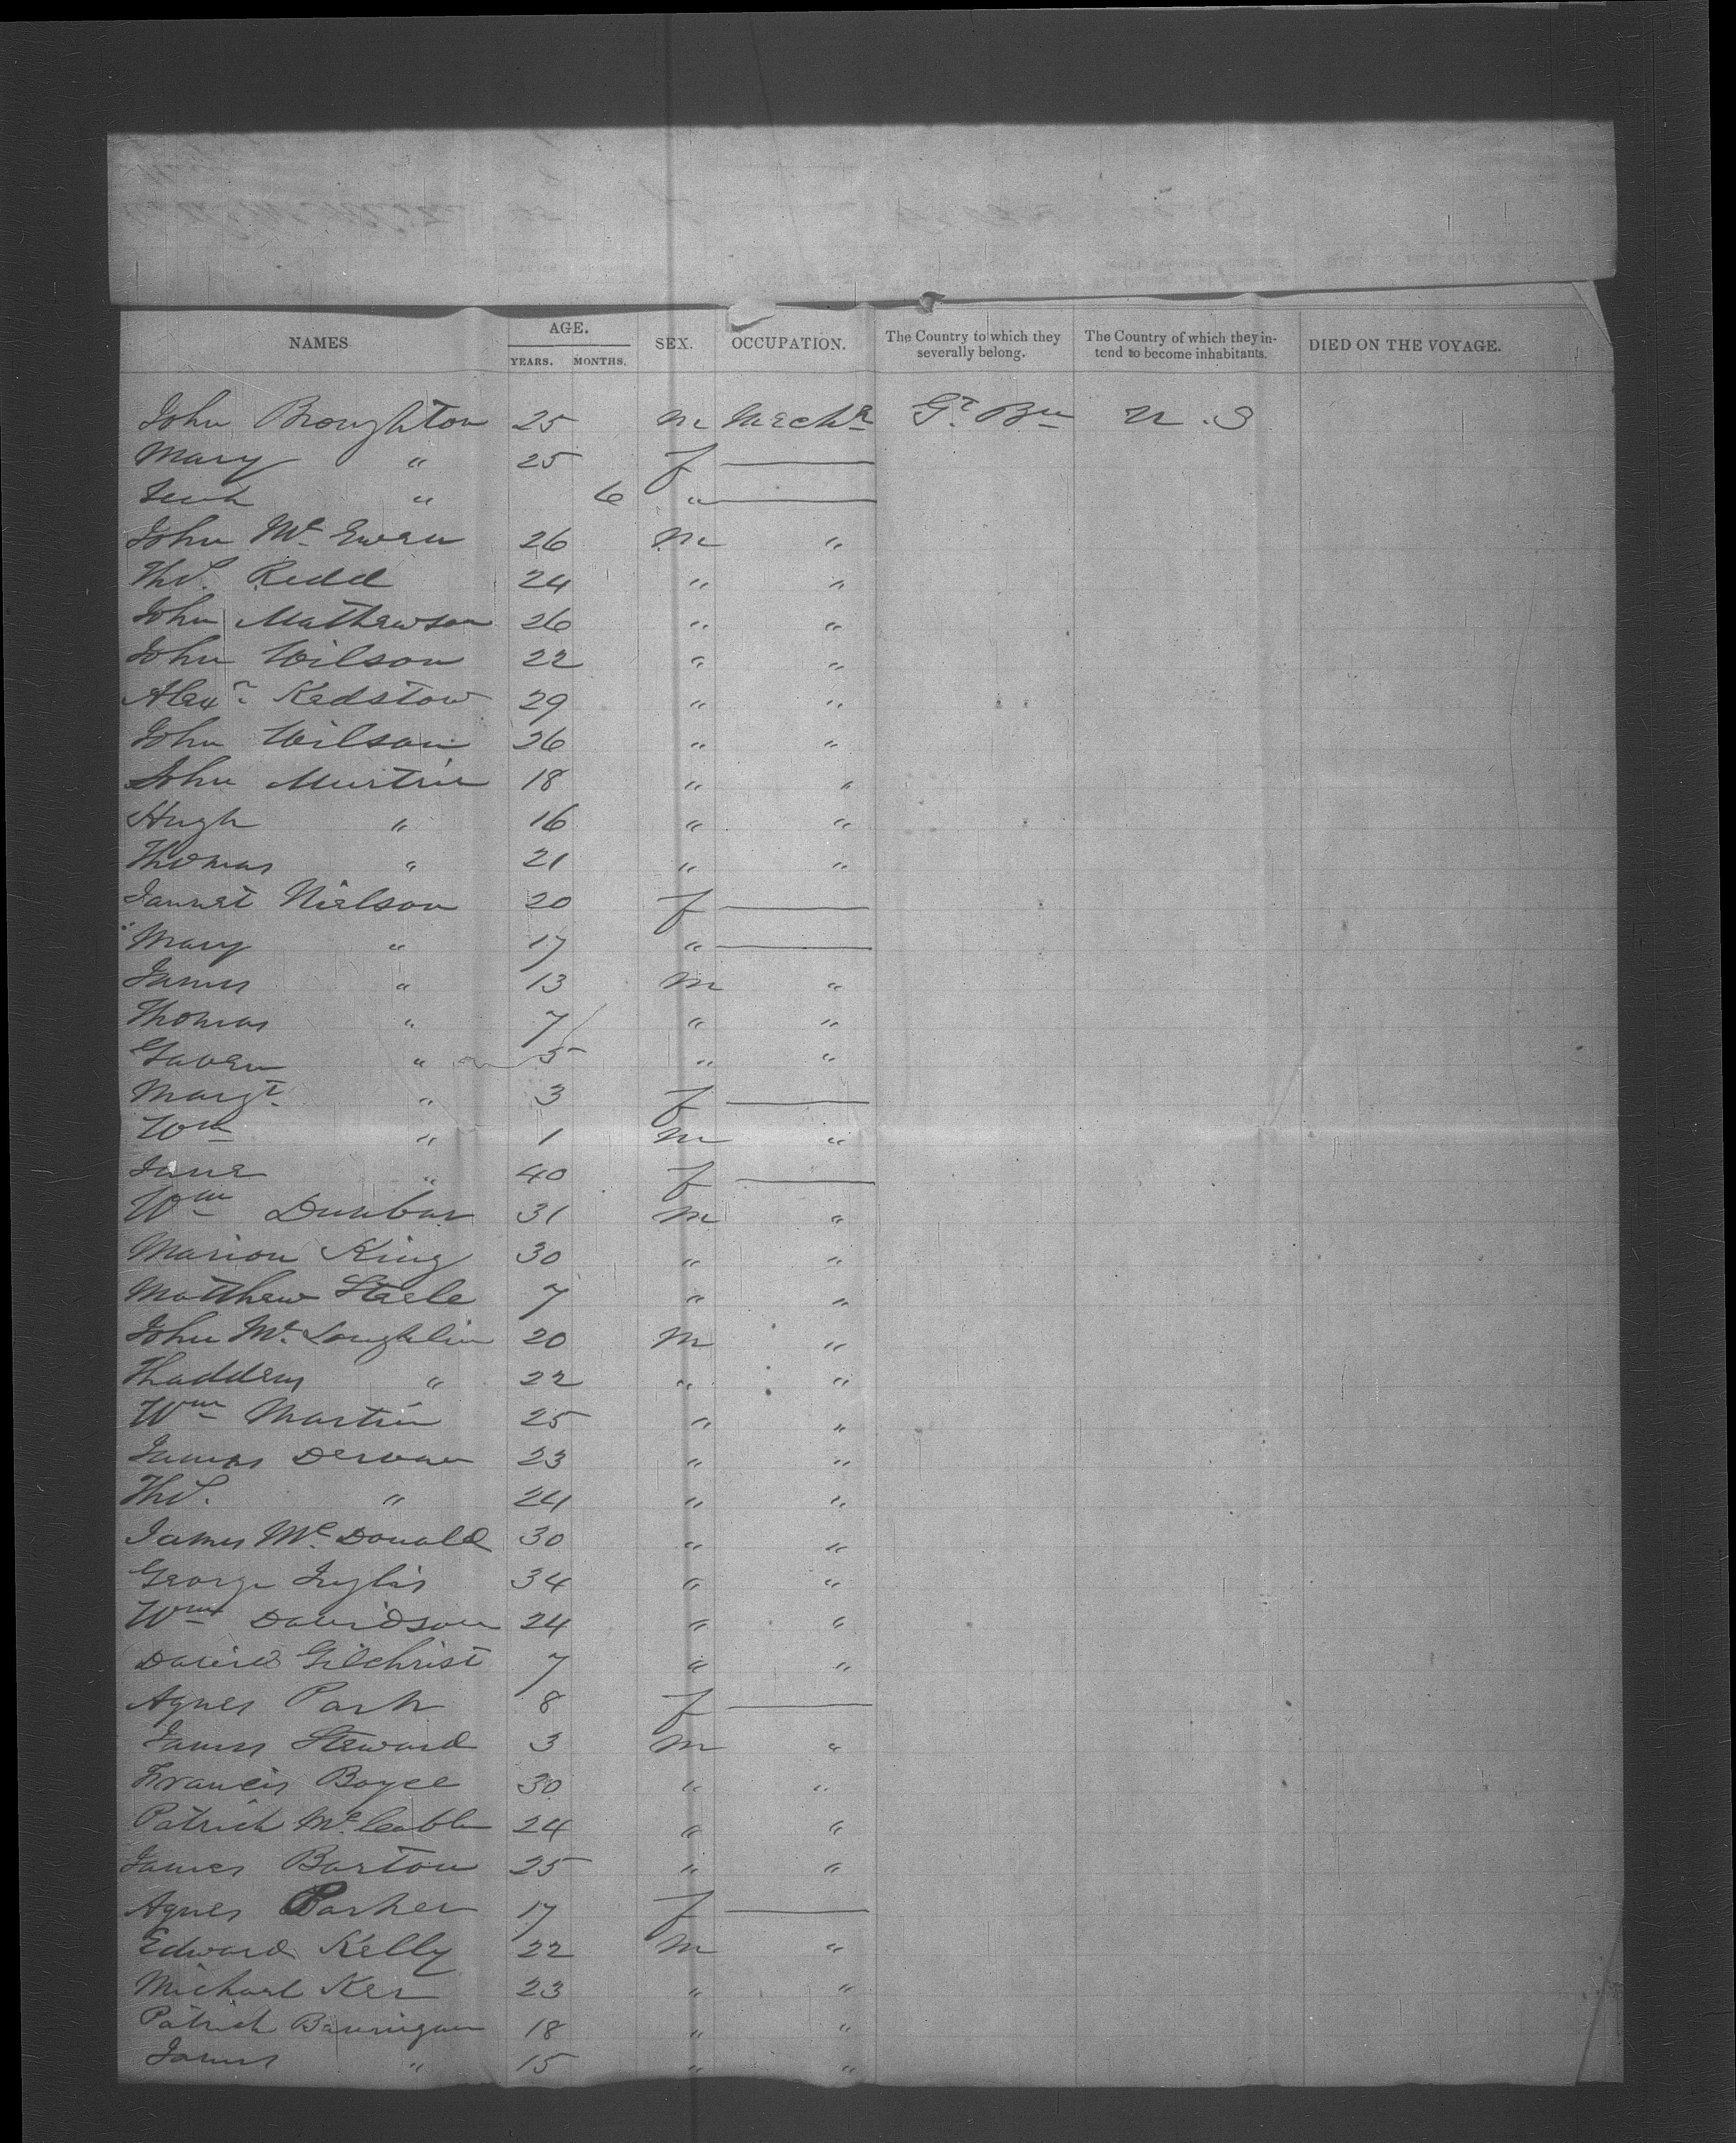 NAMES AGE. YEARS. MONTHS. SEX. OCCUPATION. The Country to which they severally belong. The Country of which they intend to become inhabitants. DIED ON THE VOYAGE.
John Broughton 25 m Mechc Gt. Bn U.S
Mary " 25 f —
" 6 " —
John Mc Ewen 26 m "
Thos. Redd 24 " "
John Mathewson 26 " "
John Wilson 22 " "
Alexr Kedstow 29 " "
John Wilson 26 " "
John 18 " "
Hugh " 16 " "
Thomas " 21 " "
Jannet Nielson 20 f —
Mary " 17 " —
James " 13 m "
Thomas " 7 " "
Gaven " 5 " "
Margt. " 3 f —
Wm " 1 m "
Jane " 40 f —
Wm Dunbar 31 m "
Marion King 30 " "
Matthew Steele 7 " "
John Mc Loughlin 20 m "
Thaddeus " 22 " "
Wm Martin 25 " "
James 23 " "
Thos. " 24 " "
James Mc Donald 30 " "
George Inglis 34 " "
Wm Davidson 24 " "
David Gilchrist 7 " "
Agnes Park 8 f —
James Steward 3 m "
Francis Boyce 30 " "
Patrick Mc Cabe 24 " "
James Barton 25 " "
Agnes Parker 17 f —
Edward Kelly 22 m "
Michael Ker 23 " "
Patrick Bannigan 18 " "
James " 15 " "